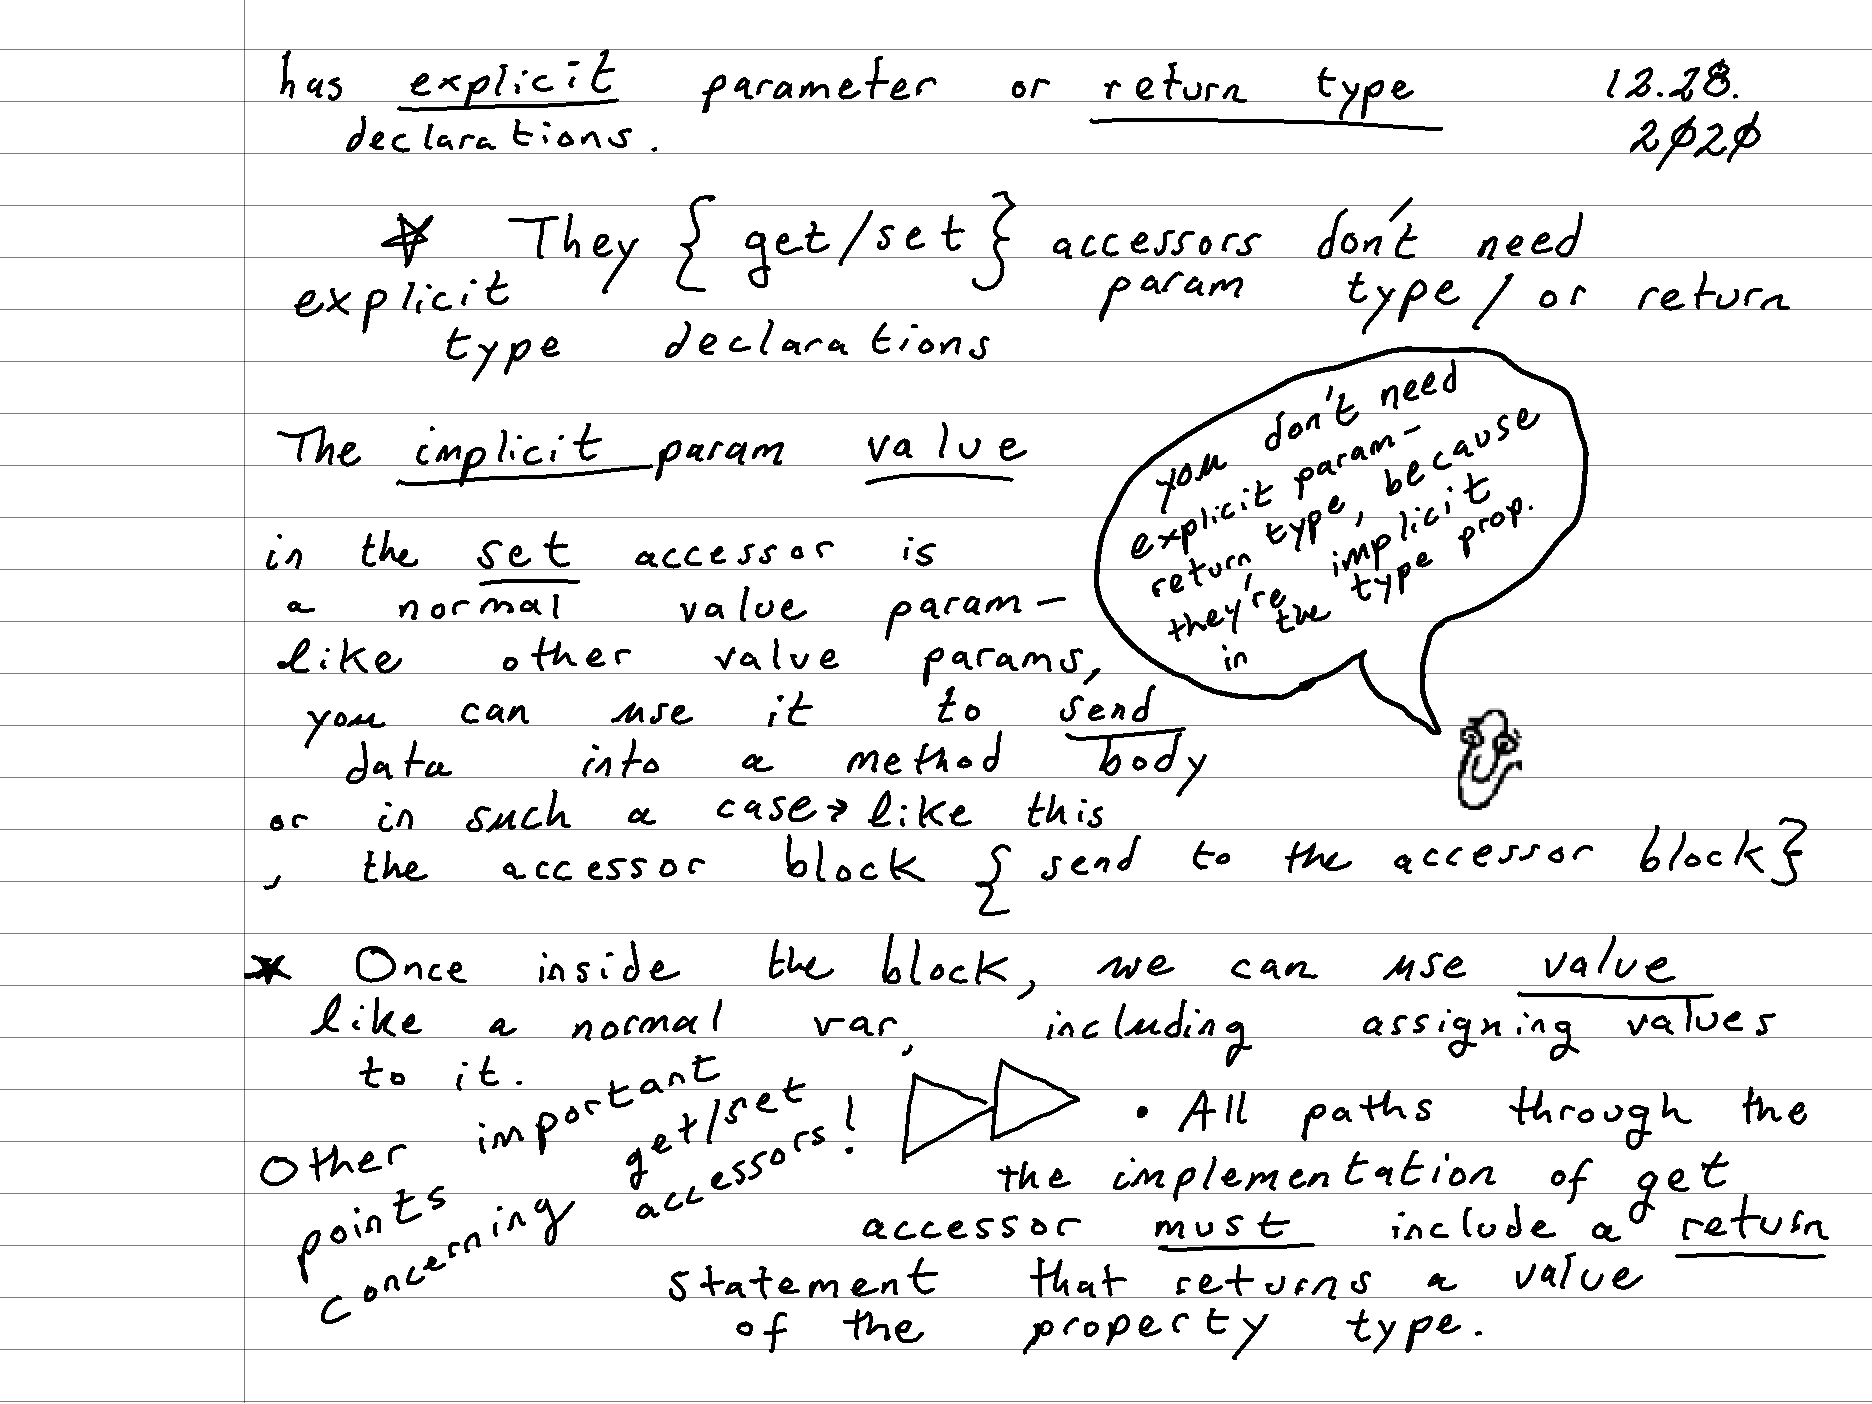 has explicit parameter or return type
declarations.
12.28.
2020
* They { get/set } accessors don't need
explicit param type / or return
type declarations
The implicit param value
in the set accessor is
a normal value param-
like other value params,
you can use it to send
data into a method body
or in such a case → like this
, the accessor block { send to the accessor block }
you don't need
explicit param-
return type, because
they're implicit
in the type prop.
* Once inside the block, we can use value
like a normal var, including assigning values
to it.
Other important
points get/set
concerning accessors!
• All paths through the
the implementation of get
accessor must include a return
statement that returns a value
of the property type.